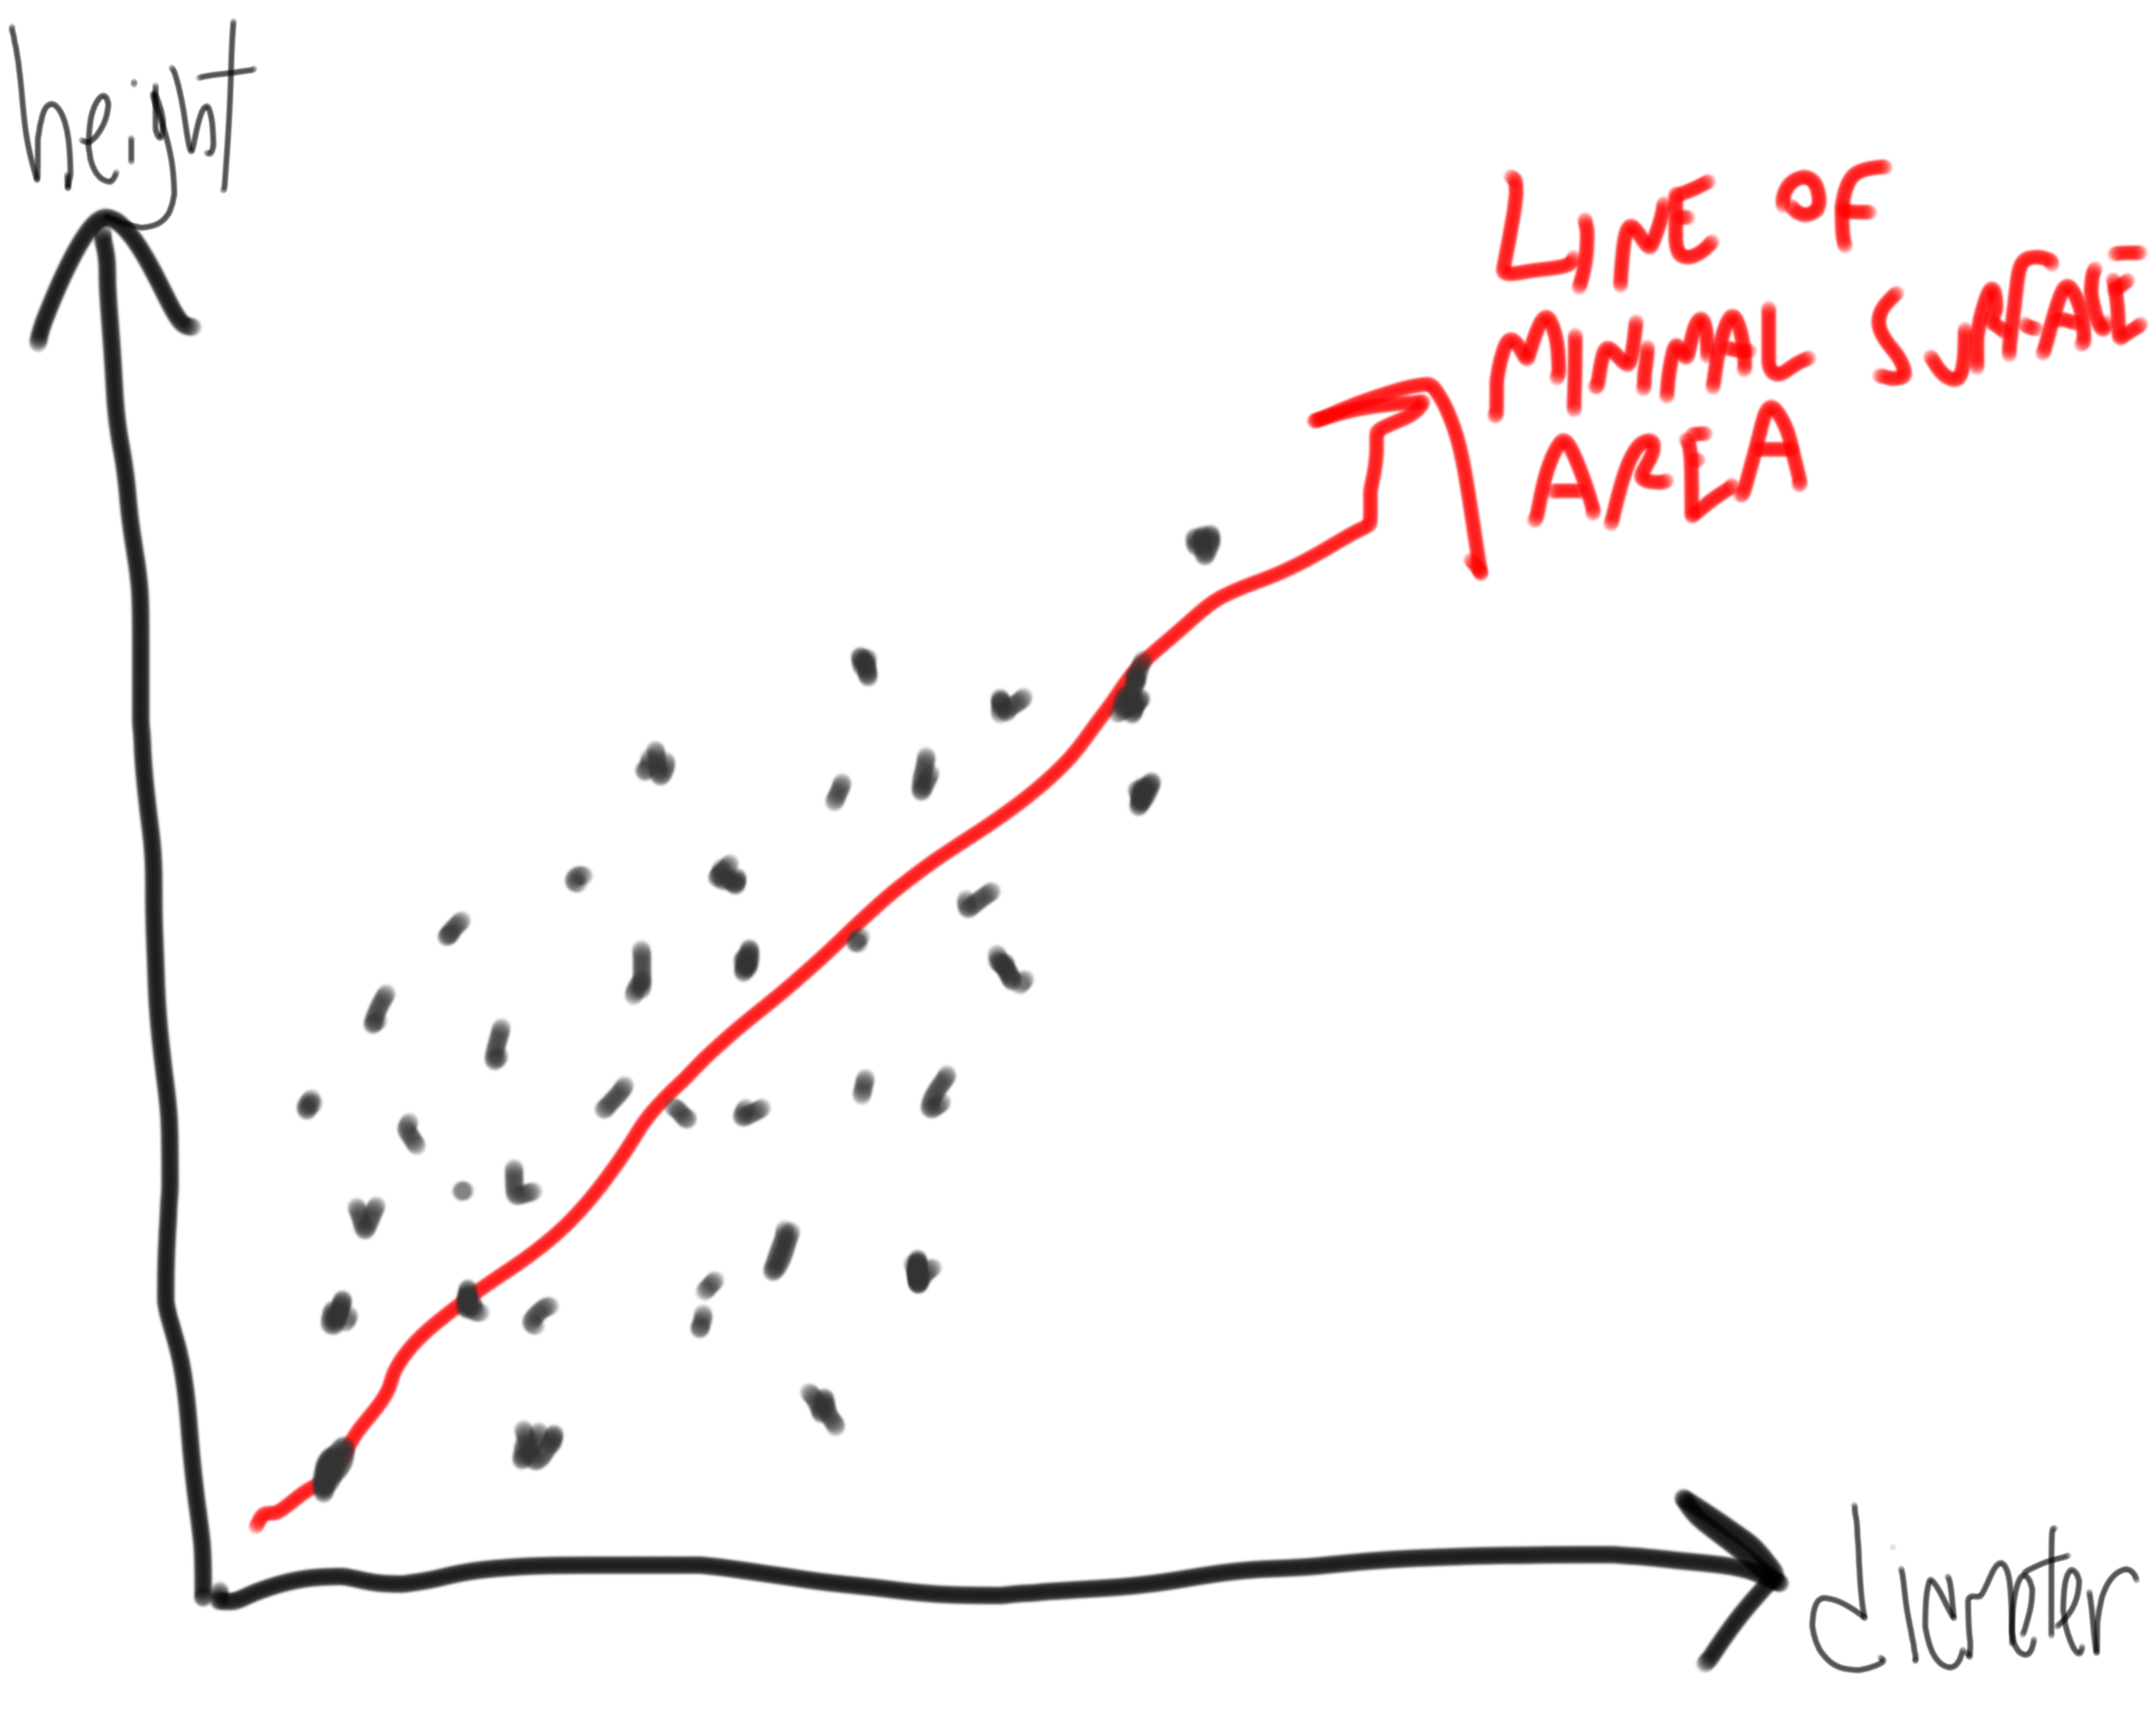 height
LINE OF
MINIMAL SURFACE
AREA
diameter